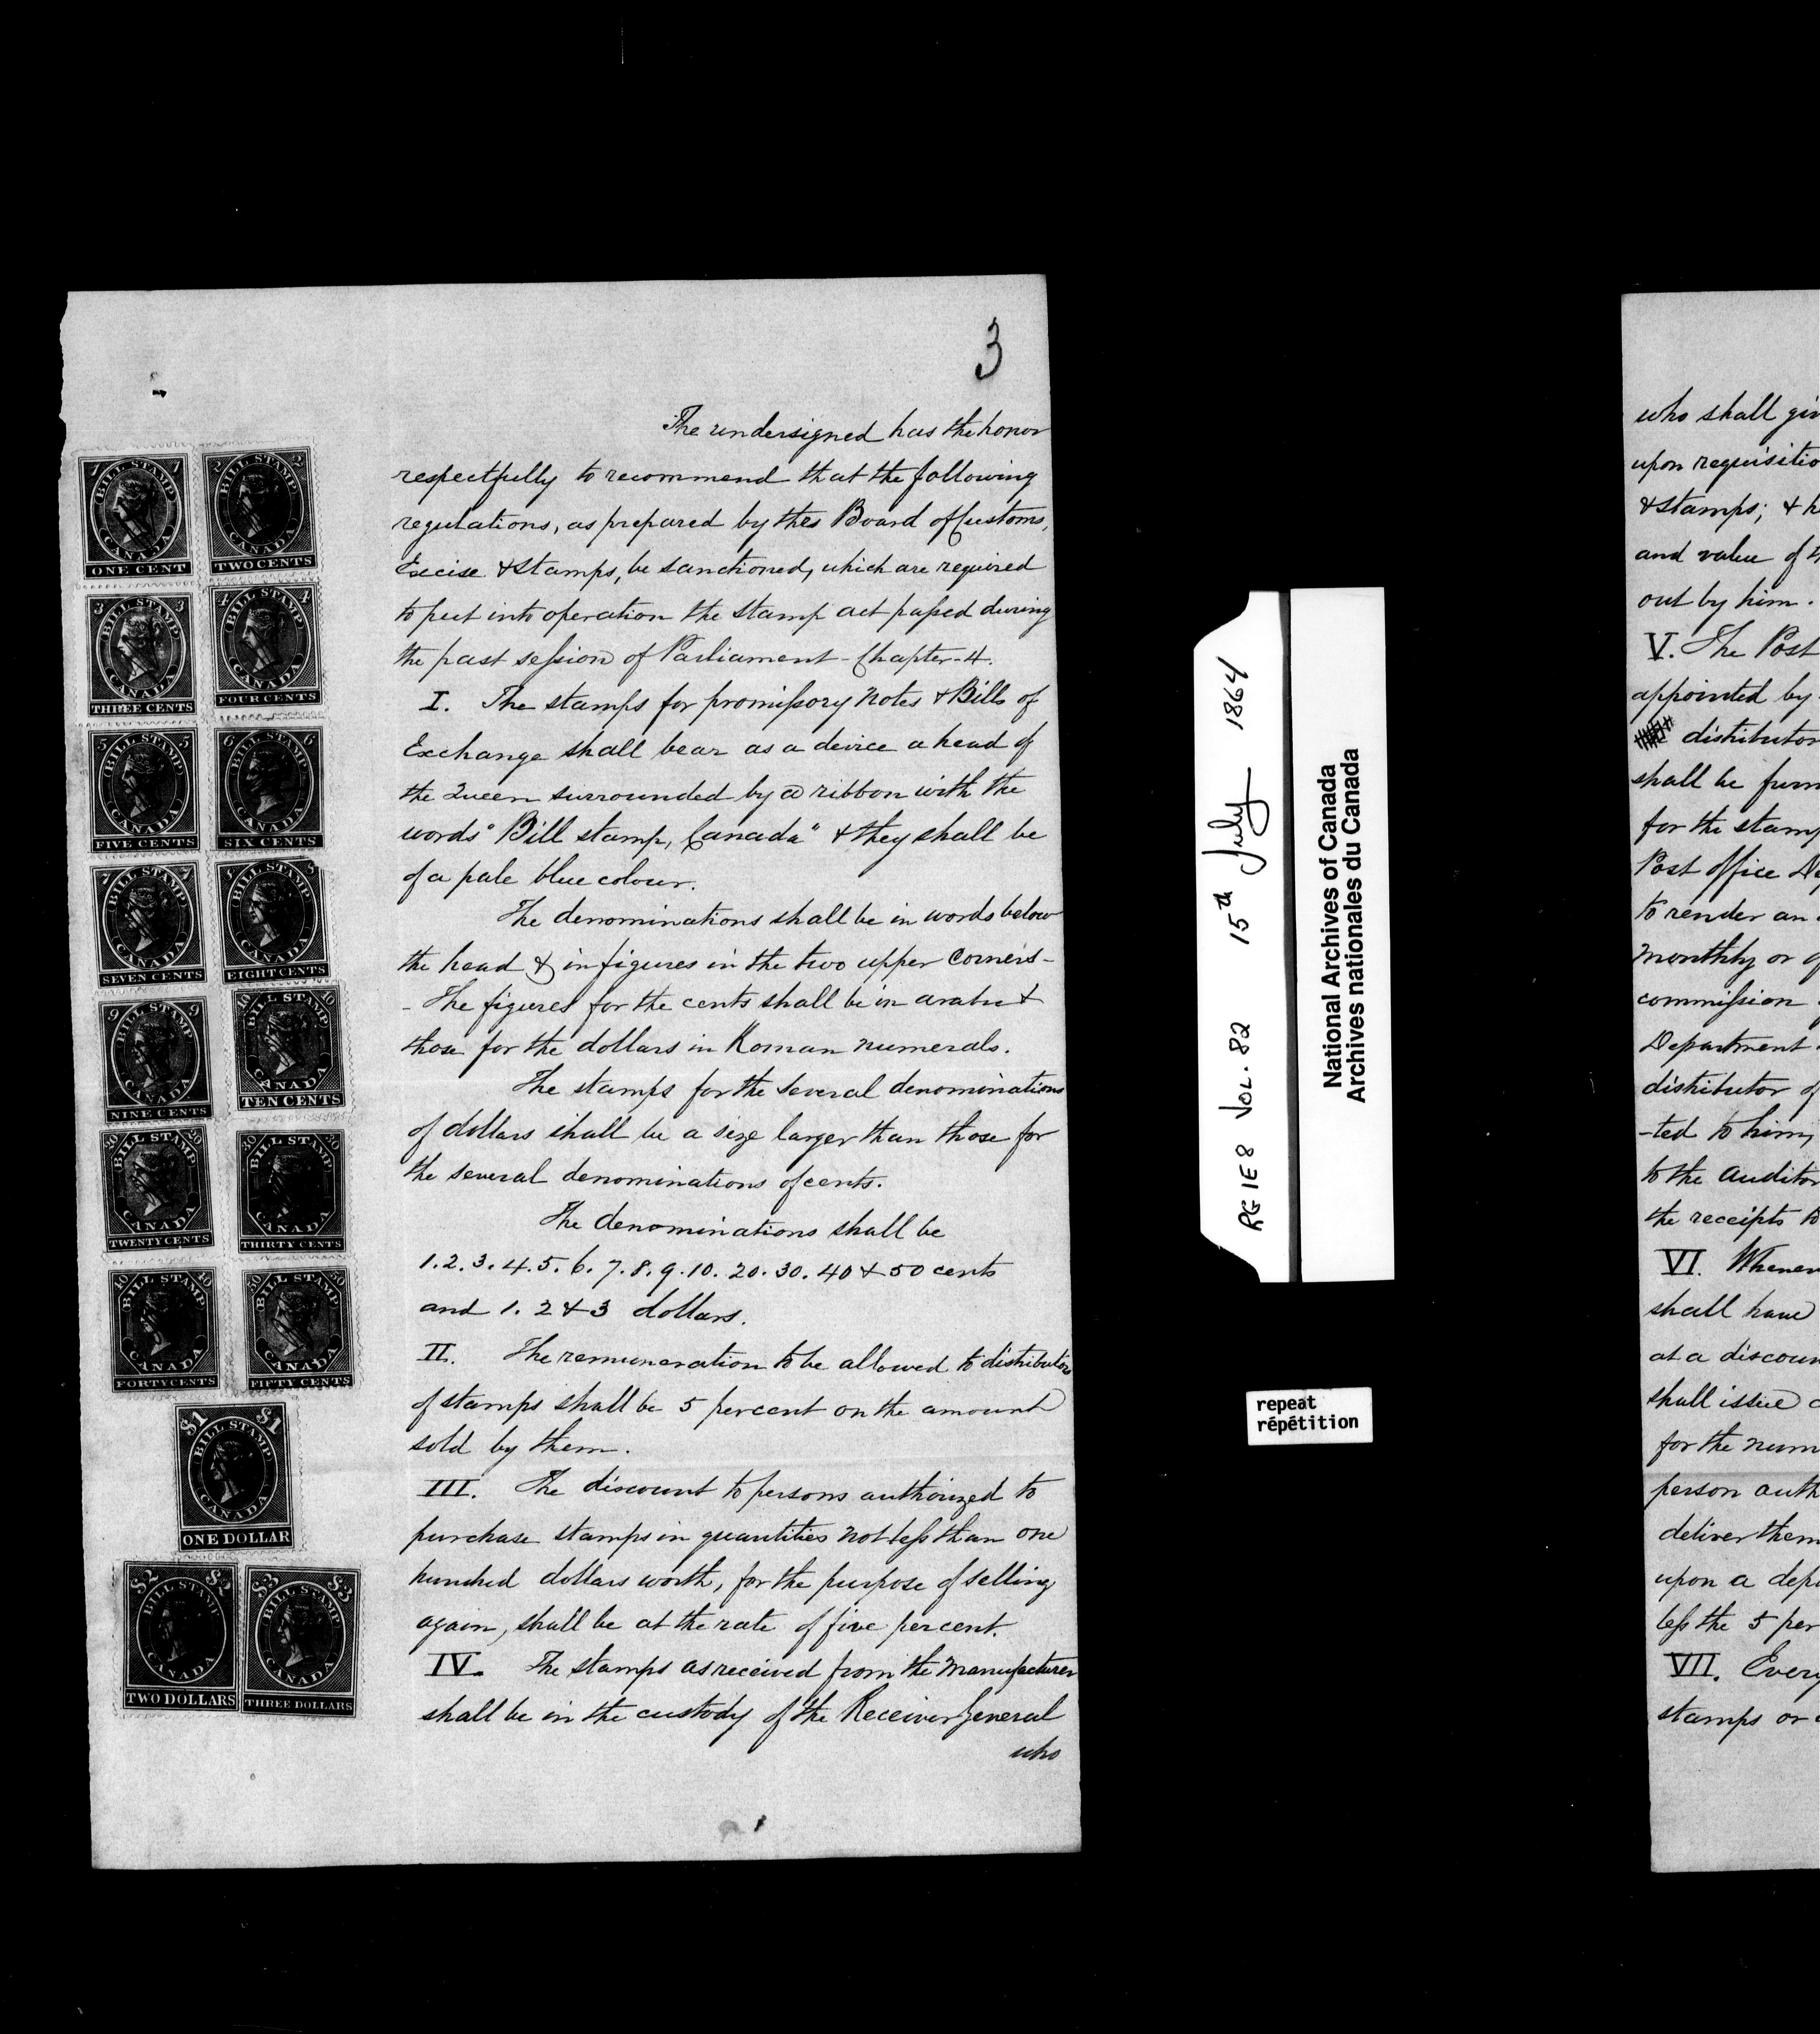 3
The undersigned has the honor
respectfully to recommend that the following
regulations, as prepared by the Board of Customs,
Excise & Stamps, be sanctioned, which are required
to put into operation the stamp act passed during
the past session of Parliament - Chapter - 4.
I. The stamps for promissory notes & Bills of
Exchange shall bear as a device a head of
the Queen surrounded by a ribbon with the
words "Bill stamp, Canada" & they shall be
of a pale blue colour.
The denominations shall be in words below
the head & in figures in the two upper corners -
- The figures for the cents shall be in arabic &
those for the dollars in Roman numerals.
The stamps for the several denominations
of dollars shall be a size larger than those for
the several denominations of cents.
The denominations shall be
1. 2. 3. 4. 5. 6. 7. 8. 9. 10. 20. 30. 40 & 50 cents
and 1. 2 & 3 dollars.
II. The remuneration to be allowed to distributors
of stamps shall be 5 percent on the amount
sold by them.
III. The discount to persons authorized to
purchase stamps in quantities not less than one
hundred dollars worth, for the purpose of selling
again, shall be at the rate of five per cent.
IV. The stamps as received from the manufacturer
shall be in the custody of the Receiver General
who
1 BILL STAMP 1
CANADA
ONE CENT
2 BILL STAMP 2
CANADA
TWO CENTS
3 BILL STAMP 3
CANADA
THREE CENTS
4 BILL STAMP 4
CANADA
FOUR CENTS
5 BILL STAMP 5
CANADA
FIVE CENTS
6 BILL STAMP 6
CANADA
SIX CENTS
7 BILL STAMP 7
CANADA
SEVEN CENTS
8 BILL STAMP 8
CANADA
EIGHT CENTS
9 BILL STAMP 9
CANADA
NINE CENTS
10 BILL STAMP 10
CANADA
TEN CENTS
20 BILL STAMP 20
CANADA
TWENTY CENTS
30 BILL STAMP 30
CANADA
THIRTY CENTS
40 BILL STAMP 40
CANADA
FORTY CENTS
50 BILL STAMP 50
CANADA
FIFTY CENTS
$1 BILL STAMP $1
CANADA
ONE DOLLAR
$2 BILL STAMP $2
CANADA
TWO DOLLARS
$3 BILL STAMP $3
CANADA
THREE DOLLARS
RG 1E8 VOL. 82 15th July 1864
National Archives of Canada
Archives nationales du Canada
repeat
répétition
who shall
upon
& stamps; &
and value of
out by him.
V. The Post
appointed by
distributor
shall be
for the
Post Office
to render an
monthly or
commission
Department
distributor
-ted to him,
to the auditor
the receipts to
VI.
shall have
at a
shall issue
for the
person
deliver
upon a
less the 5 per
VII.
stamps or